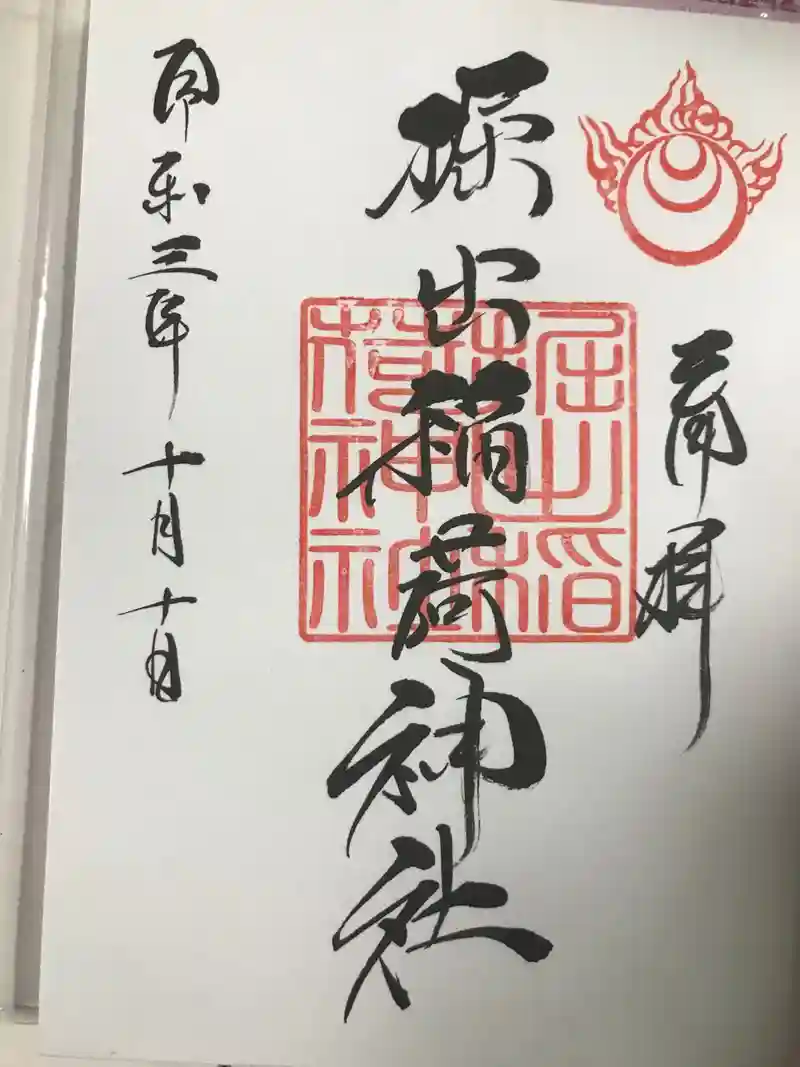 奉拝
堀出稲荷神社
堀出稲
荷神社
令和三年 十月十日